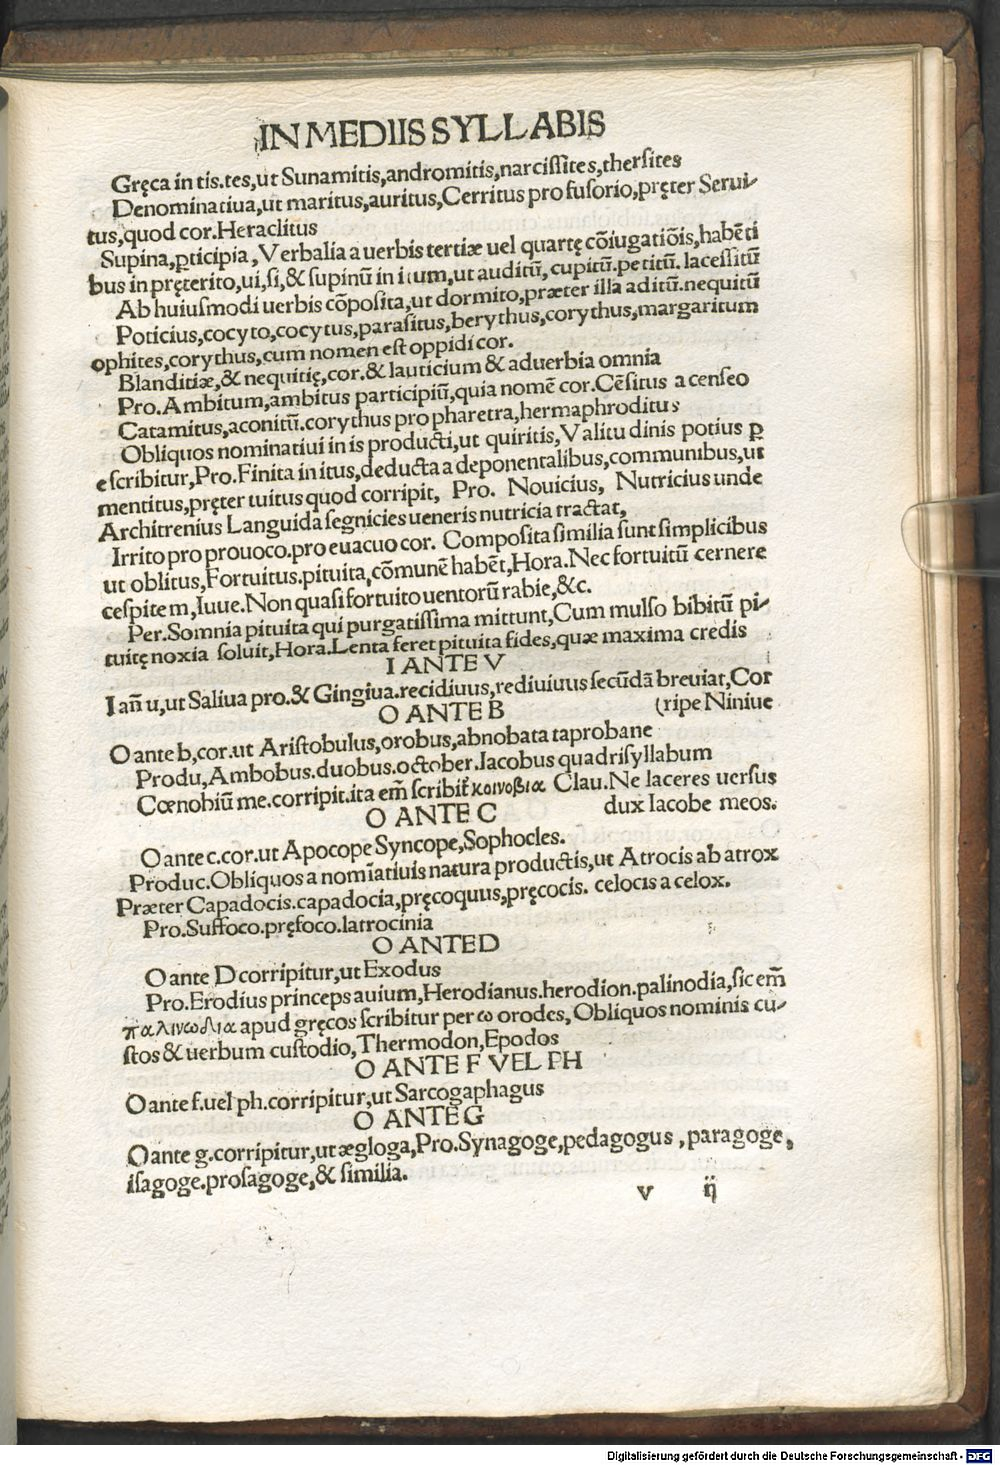 IN MEDIIS SYLLABIS
Gręca in tis.tes,ut Sunamitis,andromitis,narcissites,thersites
Denominatiua,ut maritus,auritus,Cerritus pro fusorio,pręter Serui⸗
tus,quod cor.Heraclitus
Supina,ꝑticipia,Verbalia a uerbis tertiæ uel quartę cõiugatiõis,habẽti
bus in pręterito,ui,si,& supinũ in itum,ut auditũ,cupitũ.petitũ.lacessitũ
Ab huiusmodi uerbis cõposita,ut dormito,præter illa aditũ.nequitũ
Poticius,cocyto,cocytus,parasitus,berythus,corythus,margaritum
ophites,corythus,cum nomen est oppidi cor.
Blanditiæ,& nequitię,cor.& lauticium & aduerbia omnia
Pro.Ambitum,ambitus participiũ,quia nomẽ cor.Cẽsitus a censeo
Catamitus,aconitũ.corythus pro pharetra,hermaphroditus
Obliquos nominatiui in is producti,ut quiritis,Valitudinis potius ꝑ
e scribitur,Pro.Finita in itus,deducta a deponentalibus,communibus,ut
mentitus,pręter tuitus quod corripit, Pro. Nouicius, Nutricius unde
Architrenius Languida segnicies ueneris nutricia tractat,
Irrito pro prouoco.pro euacuo cor. Composita similia sunt simplicibus
ut oblitus,Fortuitus.pituita,cõmunẽ habẽt,Hora.Nec fortuitũ cernere
cespitem,Iuue.Non quasi fortuito uentorũ rabie,&c.
Per.Somnia pituita qui purgatissima mittunt,Cum mulso bibitũ pi⸗
tuitę noxia soluit,Hora.Lenta feret pituita fides,quæ maxima credis
I ANTE V
I añ u,ut Saliua pro.& Gingiua.recidiuus,rediuiuus secũdã breuiat,Cor
O ANTE B (ripe Niniue
O ante b,cor.ut Aristobulus,orobus,abnobata taprobane
Produ,Ambobus.duobus.october.Iacobus quadrisyllabum
Cœnobiũ me.corripit.ita em̃ scribit̃ κοινοβια Clau.Ne laceres uersus
O ANTE C dux Iacobe meos.
O ante c.cor.ut Apocope Syncope,Sophocles.
Produc.Obliquos a nom̃atiuis natura productis,ut Atrocis ab atrox
Præter Capadocis.capadocia,pręcoquus,pręcocis. celocis a celox.
Pro.Suffoco.pręfoco.latrocinia
O ANTE D
O ante D corripitur,ut Exodus
Pro.Erodius princeps auium,Herodianus.herodion.palinodia,sic em̃
παλινωδια apud gręcos scribitur per ω orodes,Obliquos nominis cu⸗
stos & uerbum custodio,Thermodon,Epodos
O ANTE F VEL PH
O ante f.uel ph.corripitur,ut Sarcogaphagus
O ANTE G
O ante g.corripitur,ut ægloga,Pro.Synagoge,pedagogus,paragoge,
isagoge.prosagoge,& similia.
v ij
Digitalisierung gefördert durch die Deutsche Forschungsgemeinschaft - DFG